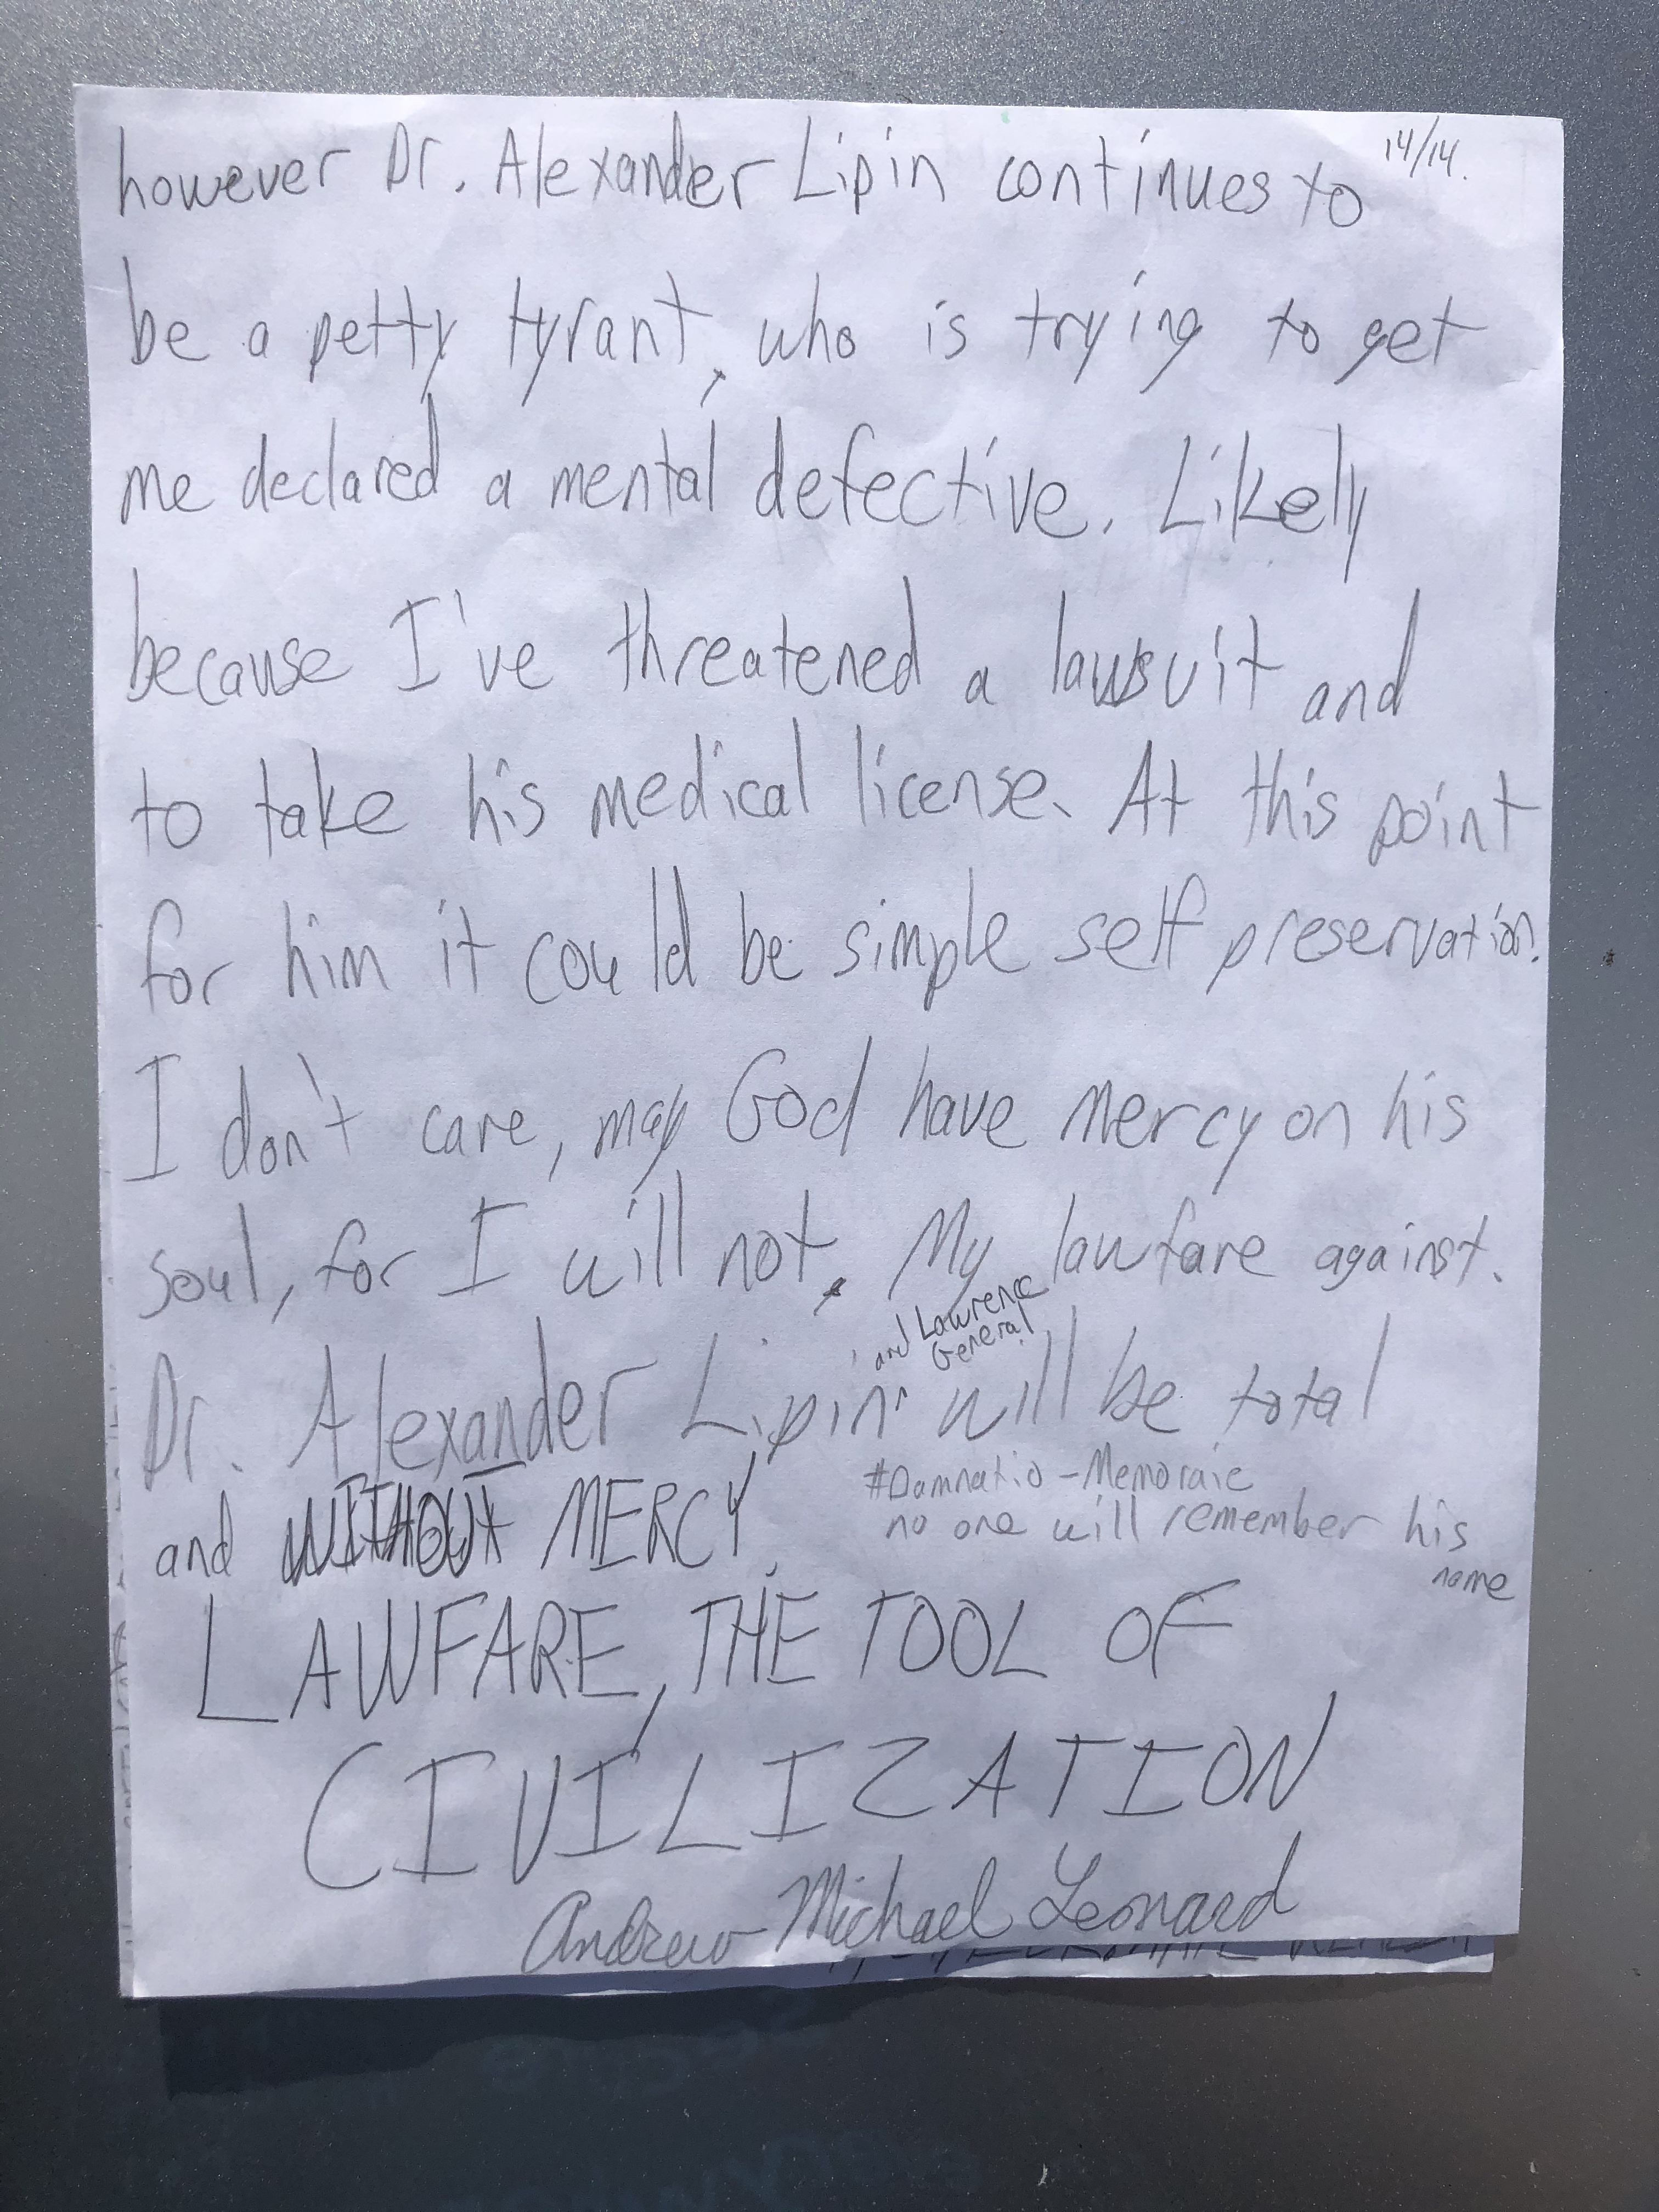 14/14.
however Dr. Alexander Lipin continues to
be a petty tyrant, who is trying to get
me declared a mental defective. Likely
because I've threatened a lawsuit and
to take his medical license. At this point
for him it could be simple self preservation.
I don't care, may God have mercy on his
soul, for I will not. My lawfare against.
and Lawrence
General
Dr. Alexander Lipin will be total
and WITHOUT MERCY.
#Damnatio-Memoraie
no one will remember his
name
LAWFARE, THE TOOL OF
CIVILIZATION
Andrew Michael Leonard